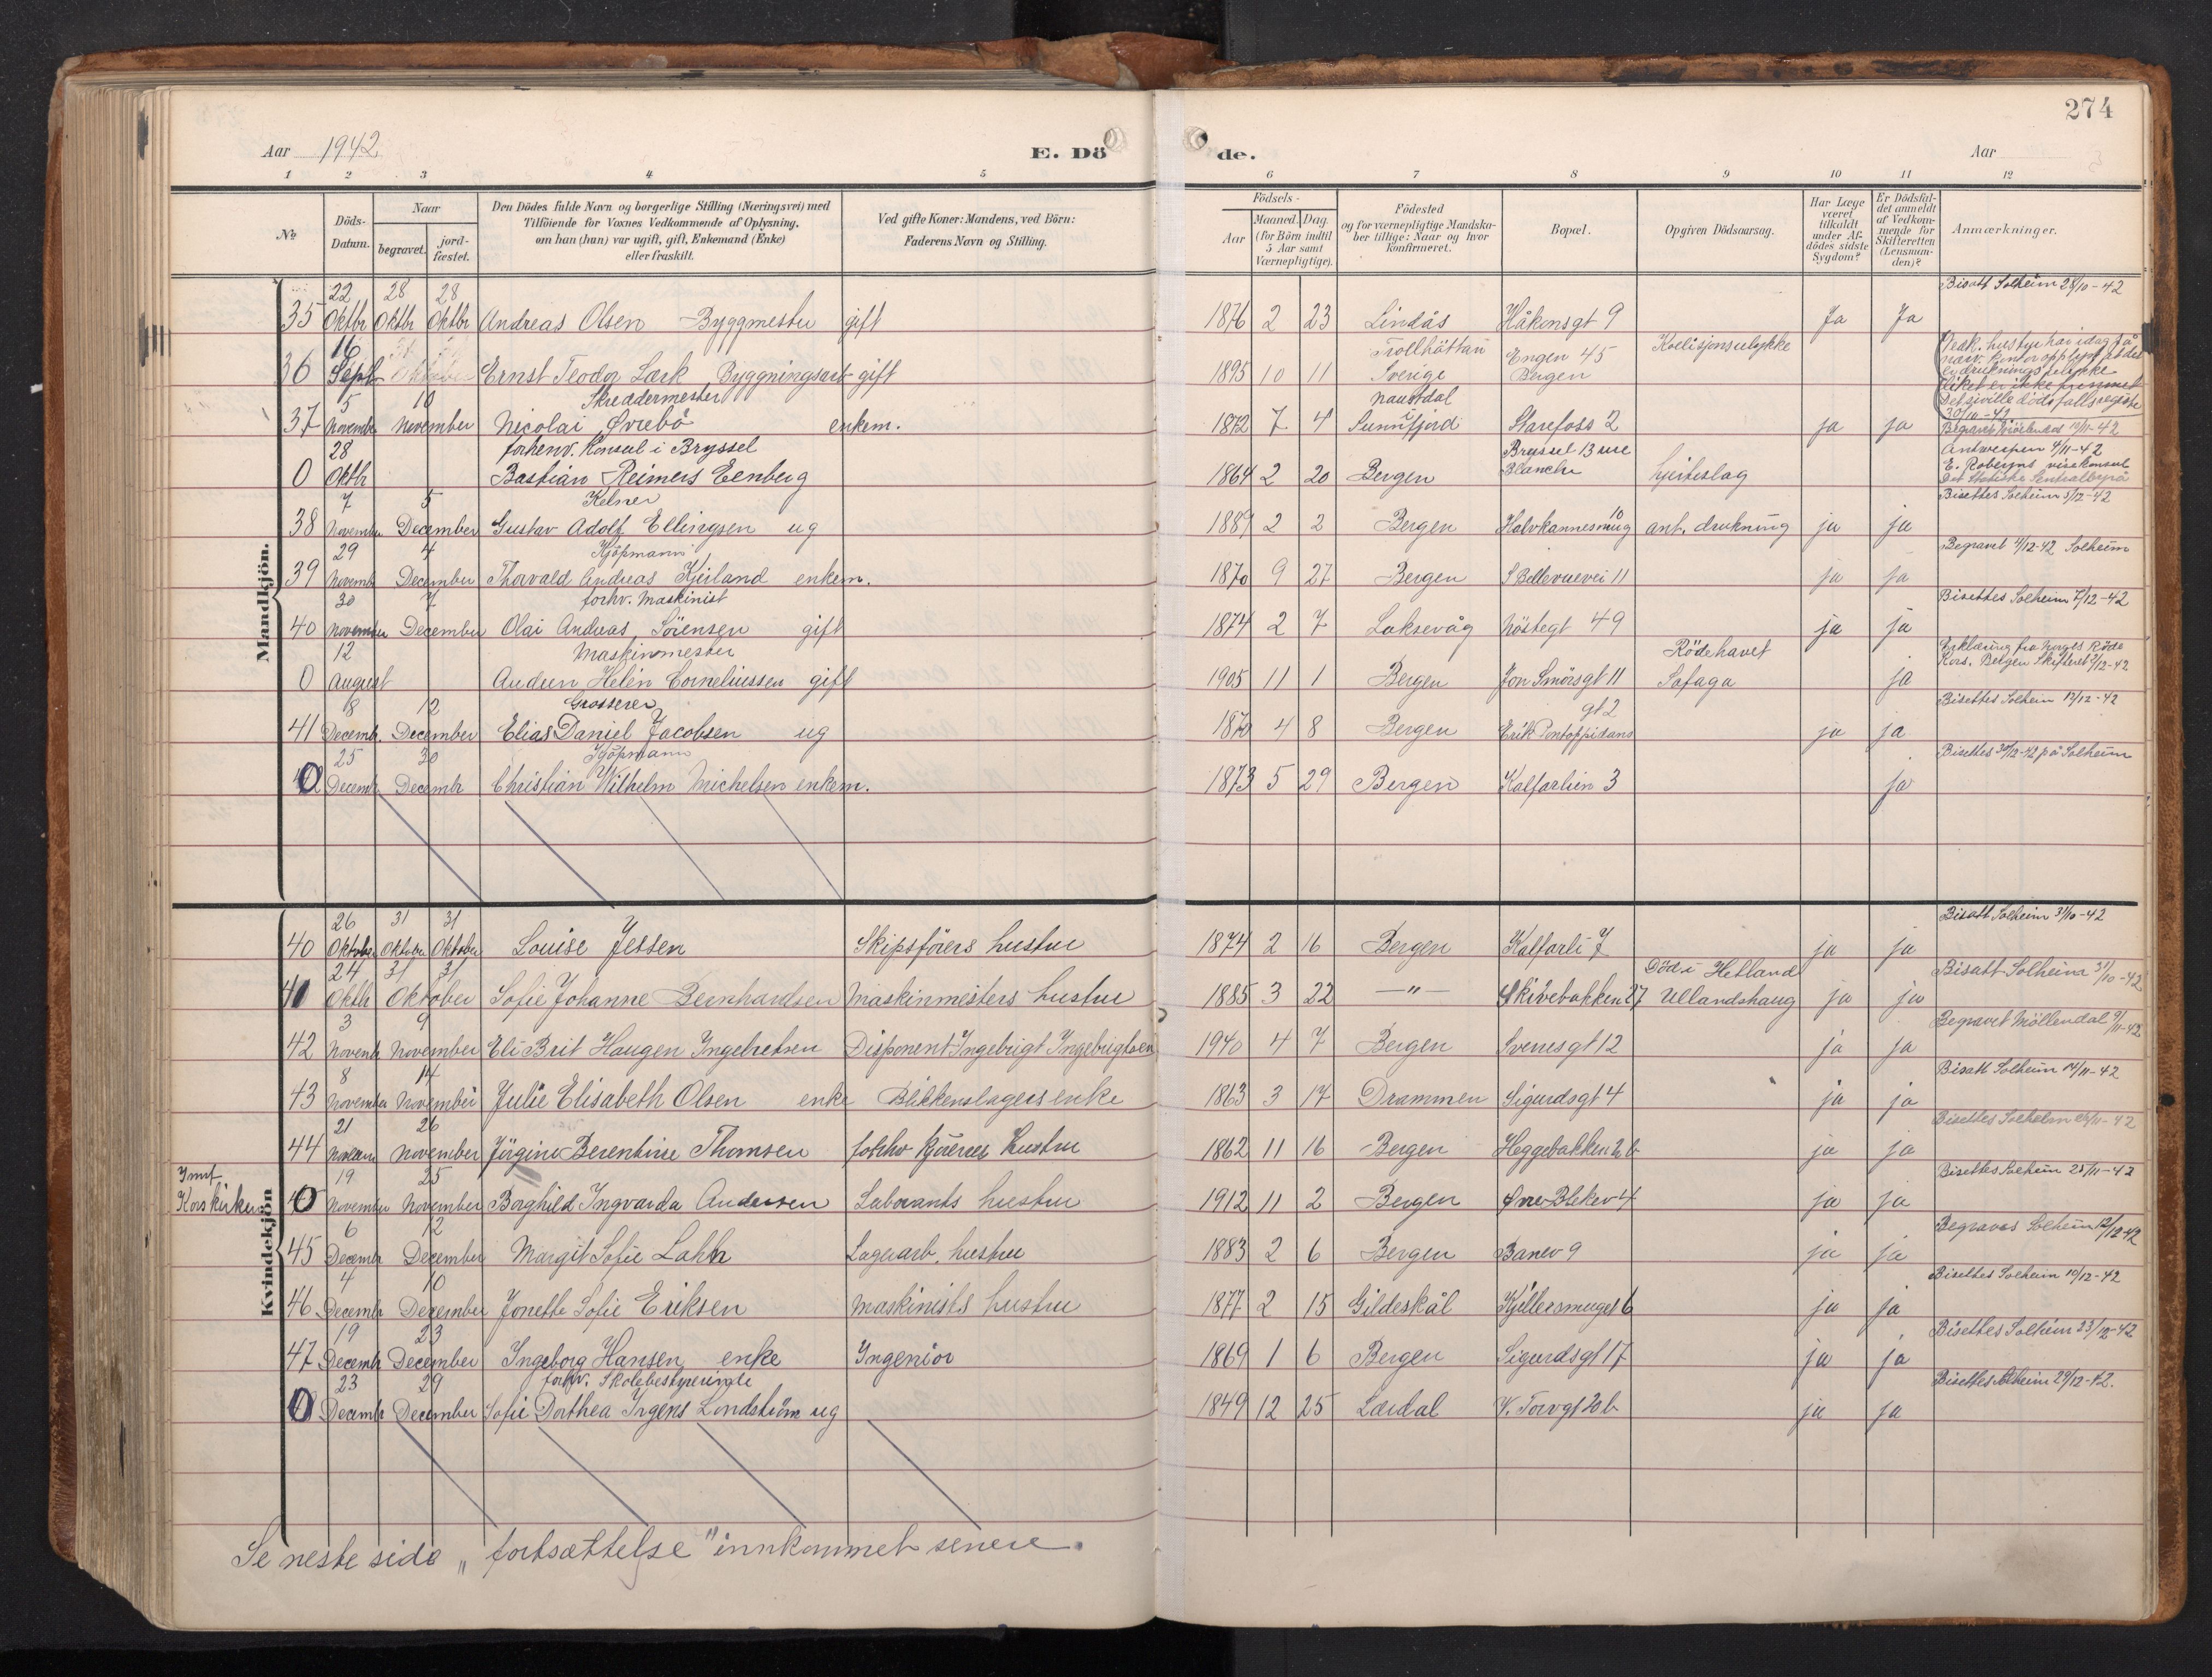 274
Aar 1942 E. Dö
de. Aar
1 2 3 4 5 6 7 8 9 10 11 12
№ Döds-Datum. Naar begravet. jord-fæstet. Den Dödes fulde Navn og borgerlige Stilling (Næringsvei) med Tilföiende for Voxnes Vedkommende af Oplysning, om han (hun) var ugift, gift, Enkemand (Enke) eller fraskilt. Ved gifte Koner: Mandens, ved Börn: Faderens Navn og Stilling.
Födsels- Aar Maaned. Dag. (for Börn indtil 5 Aar samt Værnepligtige). Födested og for værnepligtige Mandskaber tillige: Naar og hvor konfirmeret. Bopæl. Opgiven Dödsaarsag. Har Læge været tilkaldt under Afdödes sidste Sygdom? Er Dödsfaldet anmeldt af Vedkommende for Skifteretten (Lensmanden)? Anmærkninger.
Mandkjön.
22 28 28 Bisatt Solheim 28/10-42
35 Oktbr Oktbr Oktbr Andreas Olsen Byggmester gift 1876 2 23 Lindås Håkonsgt 9 Ja Ja
16 Trollhättan Engen 45 Kollisjonsulykke
36 Sept Ernst Teodor Lark Byggningsark gift 1895 10 11 Sverige Bergen
5 10 Skreddermester Naustdal i 30/11-42
37 November November Nicolai Øvrebö enkem. 1872 7 4 Sunnfjord Starefoss 2 ja ja
28 forhenv. Konsul i Bryssel Bryssel 13 rue Antwerpen 4/11-42
0 Oktbr Bastian Reimers Eenberg 1864 2 20 Bergen Blanche hjerteslag
7 5 Kelner 10 Bisettes Solheim 5/12-42
38 November December Gustav Adolf Ellingsen ug 1889 2 2 Bergen Halvkannesmug ant. drukning ja ja
29 4 Kjöpmann Begravet 4/12-42 Solheim
39 Novemb December Thorvald Andreas Kjeiland enkem. 1870 9 27 Bergen S Bellevuevei 11 ja ja
30 7 forhv. Maskinist Bisettes Solheim 7/12-42
40 November December Olai Andreas Sörensen gift 1874 2 7 Laksevåg Nöstegt 49 ja ja
12 Maskinmester Rödehavet Erklæring fra Norges Röde
0 August Audun Helen Corneliussen gift 1905 11 1 Bergen Jon Smörsgt 11 Safaga ja Kors. Bergen Skifterett /12-42
8 12 Grosserer gt 2 Bisettes Solheim 12/12-42
41 Decemb. December Elias Daniel Jacobsen ug 1870 4 8 Bergen Erik Pontoppidans ja ja
25 30 Kjöpmann Bisettes 30/12-42 på Solheim
0 Decemb Decembr Christian Wilhelm Michelsen enkem. 1873 5 29 Bergen Kalfarlien 3 ja
Kvindekjön
26 31 31 Bisatt Solheim 31/10-42
40 Oktober Oktober Oktober Louise Jessen Skipsförers hustru 1874 2 16 Bergen Kalfarli 7 ja ja
24 31 31 Död i Hetland Bisatt Solheim 31/10-42
41 Oktb Oktober Sofie Johanne Bernhardsen Maskinmesters hustru 1885 3 22 —"— Skivebakken 27 Ullandshaug ja ja
3 9 Begravet Möllendal 9/11-42
42 Novemb November Eli Brit Haugen Ingebretsen Disponent Ingebrigt Ingebrigtsen 1940 4 7 Bergen Sverresgt 12 ja ja
8 14 Bisatt Solheim 14/11-42
43 November November Julie Elisabeth Olsen enke Blikkenslagers enke 1863 3 17 Drammen Sigurdsgt 4 ja ja
21 26 Bisettes Solheim 26/11-42
44 November Jörgine Berentine Thomsen forhv Kjöeres hustru 1862 11 16 Bergen Heggebakken 2 b ja ja
Innf 19 25 Bisettes Solheim 25/11-42
Korskirken 0 November November Borghild Ingvarda Andersen Laborants hustru 1912 11 2 Bergen Øvre Blekev 4 ja ja
6 12 Begraves Solheim 12/12-42
45 Decembr December Margit Sofie Lahh Lagerarb. hustru 1883 2 6 Bergen Banev 9 ja ja
4 10 Bisettes Solheim 10/12-42
46 Decembr December Jonette Sofie Eriksen Maskinists hustru 1877 2 15 Gildeskål Kjellersmuget 6 ja ja
19 23 Bisettes Solheim 23/12-42
47 Decemb December Ingeborg Hansen enke Ingeniör 1869 1 6 Bergen Sigurdsgt 17 ja ja
23 29 forhv. Skolebestyrerinde Bisettes Solheim 29/12-42.
0 Decemb December Sofie Dorthea Irgens Lindström ug 1849 12 25 Lærdal V. Torvgt 20 b ja ja
Se neste side „fortsættelse" innkommet senere.